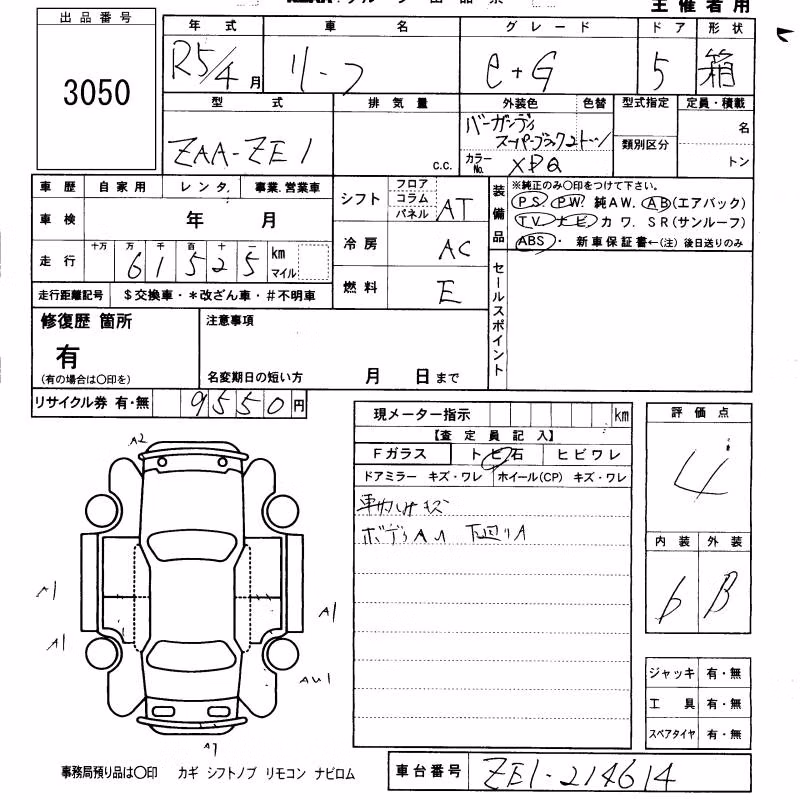 主催者用
出品番号
3050
年式 車名 グレード ドア 形状
R5/4月 リーフ e+G 5 箱
型式 排気量 外装色 色替 型式指定 定員・積載
ZAA-ZE1 c.c. バーガンディ スーパーブラック2トーン 類別区分 名
カラーNo. XPQ トン
車歴 自家用 レンタ. 事業.営業車
車検 年 月
走行 十万 万 千 百 十 一
61525 km マイル
走行距離記号 $交換車・*改ざん車・#不明車
シフト フロア コラム パネル AT
冷房 AC
燃料 E
装備品 ※純正のみ〇印をつけて下さい。
PS PW. 純AW. AB(エアバック)
TV. ナビ カワ. SR(サンルーフ)
ABS・ 新車保証書←(注)後日送りのみ
セールスポイント
修復歴 箇所
有
(有の場合は〇印を)
注意事項
名変期日の短い方 月 日まで
リサイクル券 有・無 9550円
現メーター指示 km
【査定員記入】
Fガラス トビ石 ヒビワレ
ドアミラー キズ・ワレ ホイール(CP) キズ・ワレ
キズ
ボディA1 下廻りA
評価点
4
内装 外装
b B
A2
A1
A1
A1
AU1
A1
ジャッキ 有・無
工具 有・無
スペアタイヤ 有・無
事務局預り品は〇印 カギ シフトノブ リモコン ナビロム
車台番号 ZE1-214614